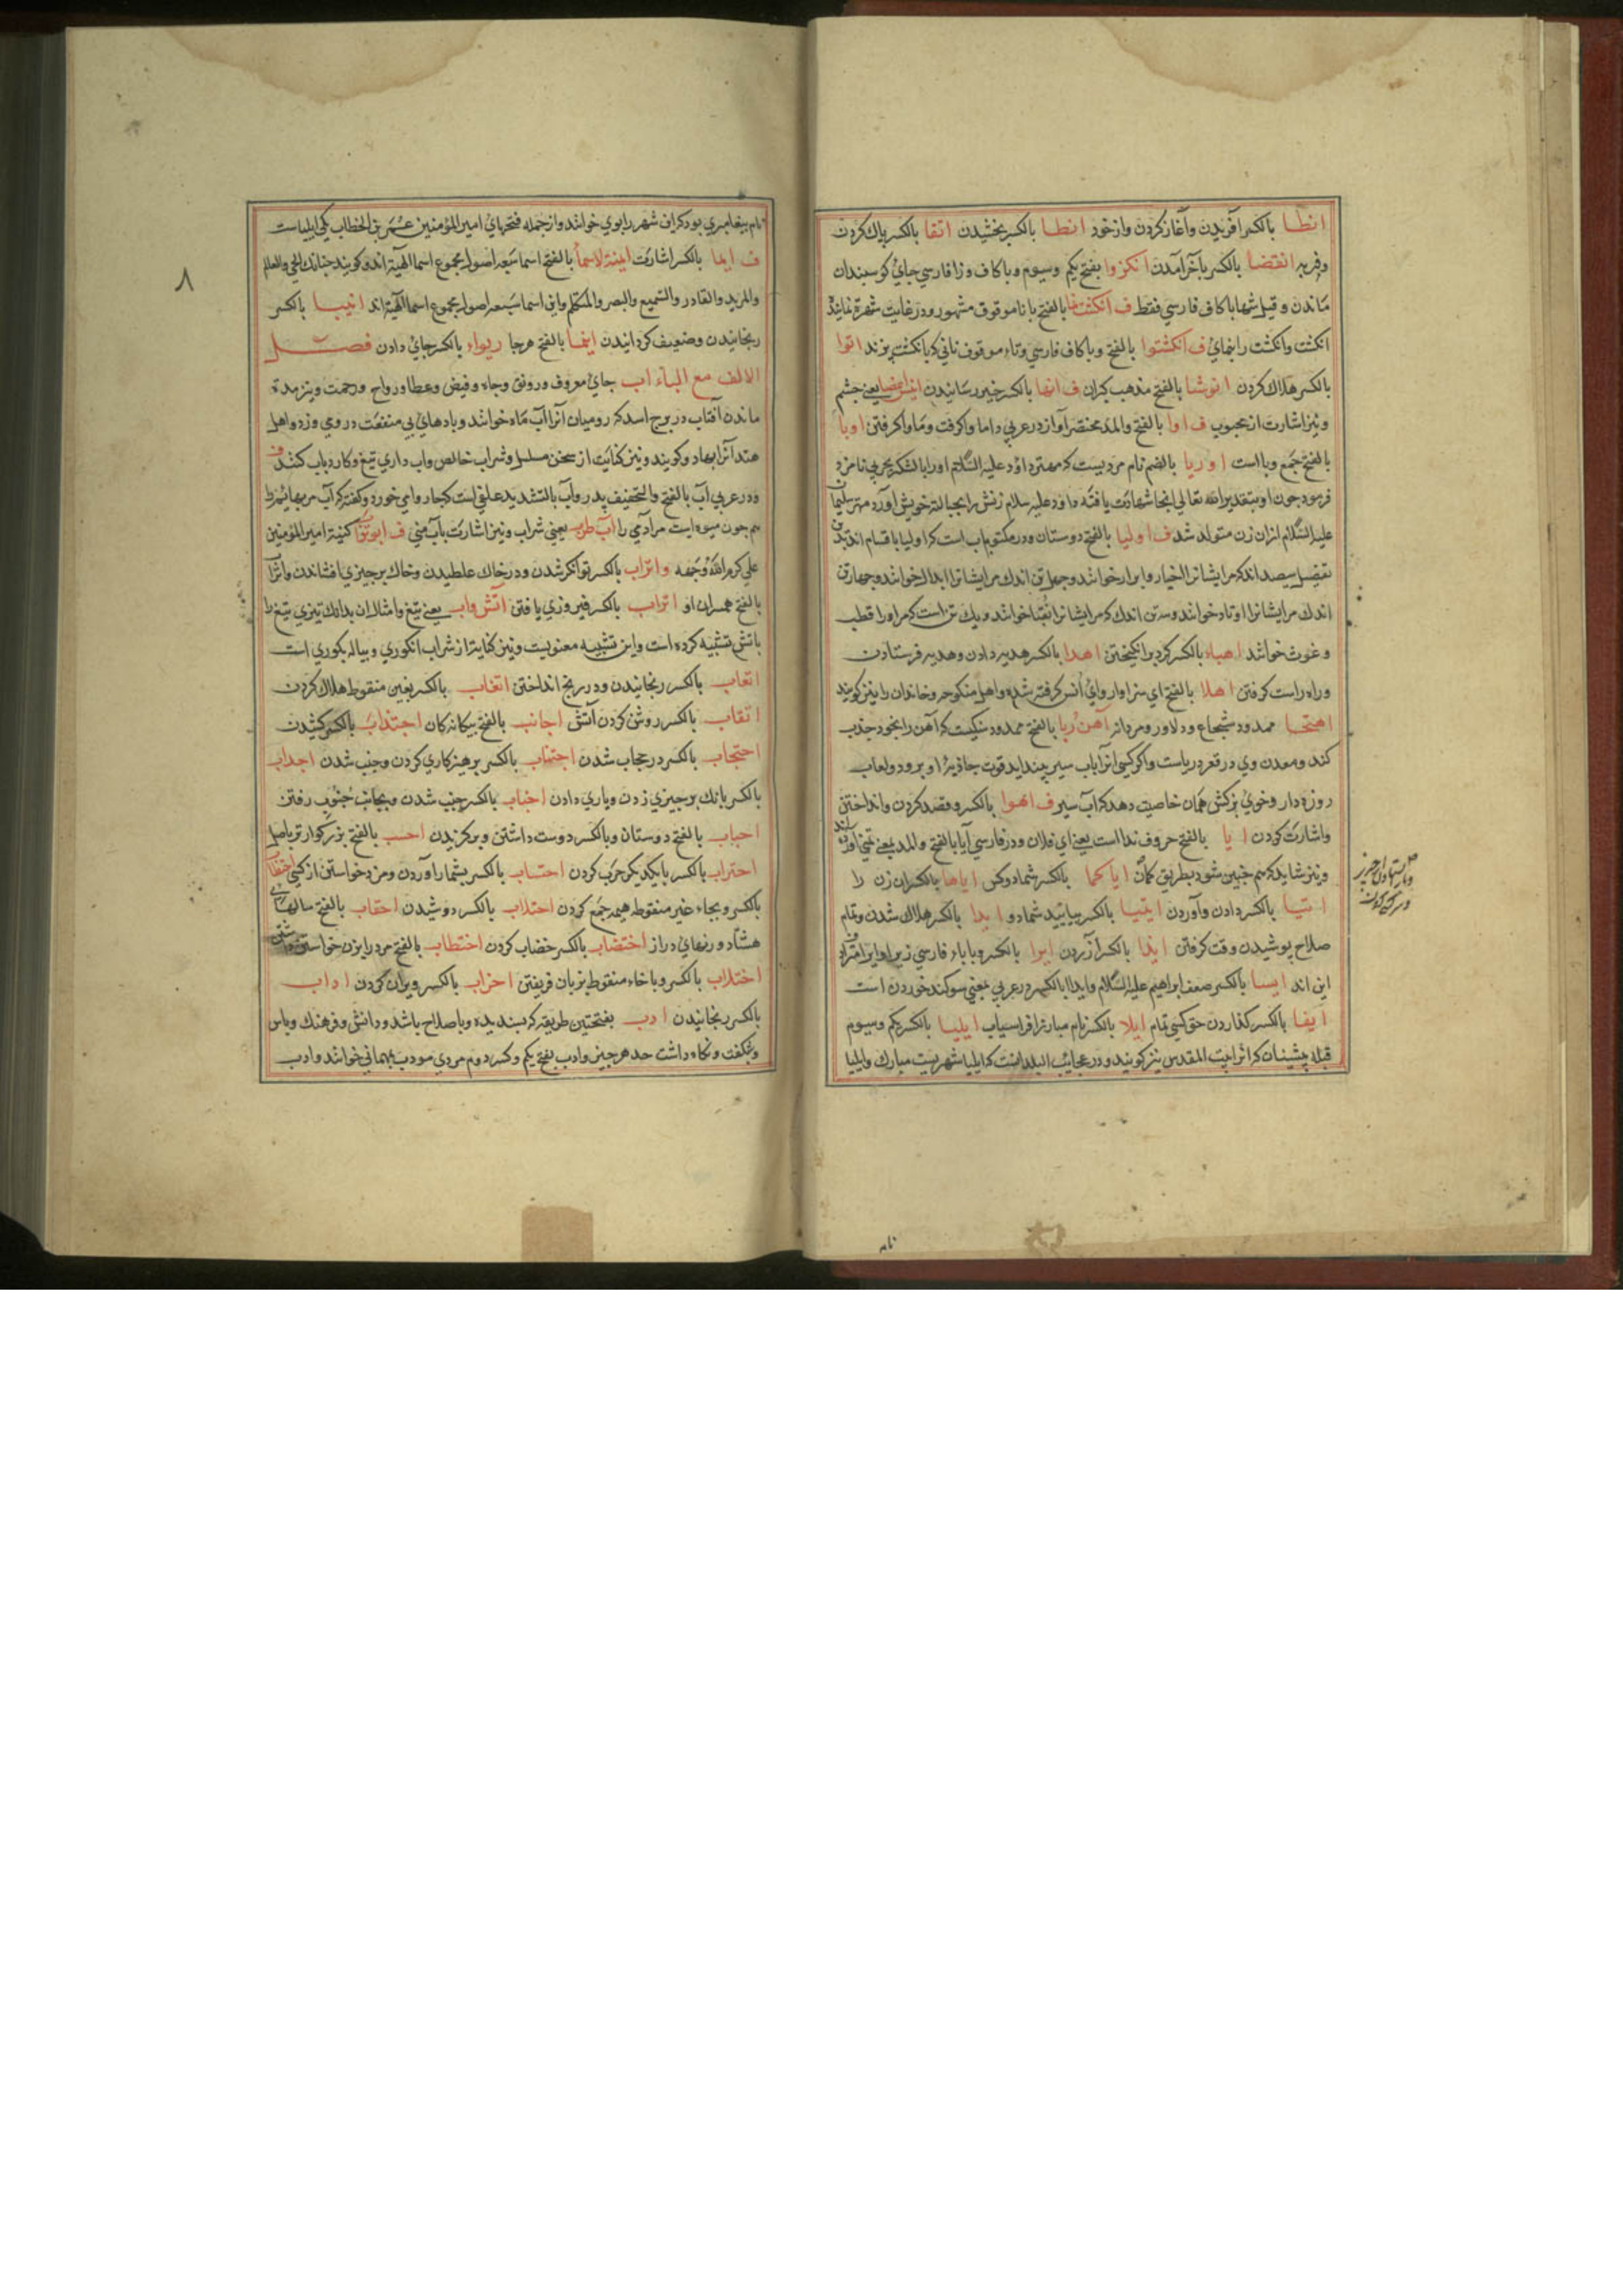 انطا بالكسر آفريدن وآغاز كردن واز خود انطا بالكسر بخشيدن اتقا بالكسر پاك كردن
وفربه انقضا بالكسر بآخر آمدن انكزوا بفتح يكم وسيوم وبا كاف وزا فارسي جاي كوسبندان
ماندن وقيل شبها با كاف فارسي فقط ف انكشت نما بالفتح با تا موقوف مشهور ودر غايت شهرة نمايند
انكشت وانكشت رانماي ف انكشتوا بالفتح وبا كاف فارسي وتاء موقوف ناني كه بانكشت پزند اتوا
بالكسر هلاك كردن انوشا بالفتح مذهب كبران ف انها بالكسر خبر رسانيدن يعني چشم
ونيز اشارت از محبوب ف اوا بالفتح والمد مختصر آواز در عربي داما واكرفت وماوا كرفتن اوبا
بالفتح جمع وبا است اوريا بالضم نام مرديست كه مهتر داؤد عليه السلام اورا با لشكر بحربي نامزد
فرمود چون او بتقدير الله تعالي انجا شهادت يافته داود عليه سلام زنش را بحباله خويش آورد مهتر سليمان
عليه السلام ازان زن متولد شد ف اوليا بالفتح دوستان ودر مكتوبات است كه اوليا باقسام اند بدين
تفصيل سيصد اند كه مرايشانرا اخيار وابرار خوانند وچهل تن اند كه مرايشانرا ابدال خوانند وچهار تن
اند كه مرايشانرا اوتاد خوانند وسه تن اند كه مرايشانرا نقبا خوانند ويك تن است كه مراورا قطب
وغوث خوانند اهباء بالكسر كرد برانكيختن اهدا بالكسر هديه دادن وهديه فرستادن
وراه راست كرفتن اهلا بالفتح اي سزاوار واي انس كرفته شده واهل منكوحه وخاندان را نيز كويند
ممدود شجاع ودلاور ومردانه آهن ربا بالفتح ممدود سنكيست كه آهن را بخود جذب
كند ومعدن وي در قعر درياست واكر كسي انرا باب سير چند ايد قوت جاذبه او برود ولعاب
روزه دار وخوي بزكش همان خاصيت دهد كه آب سير ف اهوا بالكسر وقصد كردن وانداختن
واشارت كردن ايا بالفتح حروف ندا است يعني اي فلان ودر فارسي آيا بالفتح والمد بمعني تمني آورده اند
ونيز شايد كه هم چنين شود بطريق كمان اياكما بالكسر شما دو كس اياها بالكسر ان زن را
ايتيا بالكسر دادن وآوردن ايتيا بالكسر بياييد شما دو ايدا بالكسر هلاك شدن وتمام
صلاح پوشيدن وقت كرفتن ايذا بالكسر آزردن ايرا بالكسر وبا ياء فارسي زيرا وايرا مراد
اين اند ايسا بالكسر صحف ابراهيم عليه السلام وايدا بالكسر در عربي بمعني سوكند خوردن است
ايفا بالكسر كذاردن حق كسي تمام ايلا بالكسر نام مبارز افراسياب ايليا بالكسر يكم وسيوم
قبله پيشينان كه انرا بيت المقدس نيز كويند ودر عجايب البلد است كه ايليا شهريست مبارك وايليا
نام
نام پيغامبري بود كه اين شهر را بوي خوانند واز جمله فتحهاي امير المؤمنين عمر بن الخطاب يكي ايلياست
ف ايما بالكسر اشارت ايمة الاسما بالفتح اسما سبعه اصول مجموع اسما الهية اند وكويند چنانك الحي والعالم
والمريد والقادر والسميع والبصير والمتكلم واين اسما سبعه اصول مجموع اسما الهية اند انيسا بالكسر
رنجانيدن وضعيف كردانيدن اينما بالفتح هرجا ريواء بالكسر جاي دادن فصل
الالف مع الباء اب جاي معروف ورونق وجاه وفيض وعطا ورواج ورحمت ونيز مدة
ماندن آفتاب در برج اسد كه روميان آنرا آب ماه خوانند وبادهاي بي منفعت در وي وزد واهل
هند آنرا بهادو كويند ونيز كنايت از سخن مسلسل وشراب خالص واب داري تيغ وكارد باب كنند ف
ودر عربي اب بالفتح والتخفيف پدر وآب بالتشديد علفي است كه چاروا مي خورد وكفته كه آب مر بهائم را
هم چون ميوه ايست مر آدمي را آب طرب يعني شراب ونيز اشارت بآب مني ف ابو تراب كنية امير المؤمنين
علي كرم الله وجهه واتراب بالكسر توانكر شدن ودر خاك غلطيدن وخاك بر چيزي افشاندن واترا
بالفتح همسران او اتراب بالكسر فيروزي يافتن آتش واب يعني تيغ وامثال ان بدانك تيزي تيغ را
باتش تشبيه كرده است واين تشبيه معنويست ونيز كنايت از شراب انكوري وپياله بكوري است
اتعاب بالكسر رنجانيدن ودر رنج انداختن اتغاب بالكسر بغين منقوط هلاك كردن
اتقاب بالكسر روشن كردن آتش اجانب بالفتح بيكانه كان اجتذاب بالكسر كشيدن
احتجاب بالكسر در حجاب شدن اجتناب بالكسر پرهيز كاري كردن وجنب شدن اجداب
بالكسر بانك بر چيزي زدن وياري دادن اجناب بالكسر جنب شدن وبجانب جنوب رفتن
احباب بالفتح دوستان وبالكسر دوست داشتن وبركزيدن احسب بالفتح بزركوارتر باصل
احتراب بالكسر با يكديكر حرب كردن احتساب بالكسر بشمار آوردن ومزد خواستن از كسي احتطاب
بالكسر وبحاء غير منقوطه هيمه جمع كردن احتلاب بالكسر دوشيدن احقاب بالفتح سالهاي
هشتاد ورنهاي دراز اختضاب بالكسر خضاب كردن اختطاب بالفتح مرد را بزن خواستن
اختلاب بالكسر وبا خاء منقوط بزبان فريفتن اخراب بالكسر ويران كردن اداب
بالكسر رنجانيدن ادب بفتحتين طريقه كه پسنديده وباصلاح باشد ودانش وفرهنك وپاس
وشكفت ونكاه داشت حد هر چيز وادب بفتح يكم وكسر دوم مردي مودب بمهماني خوانند وادب
٨